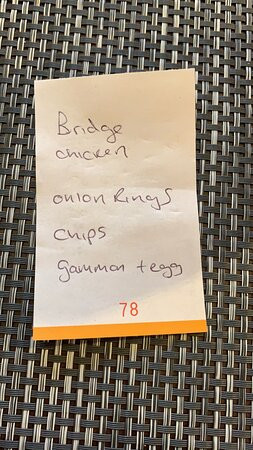 Bridge
chicken
onion Rings
chips
gammon + egg
78